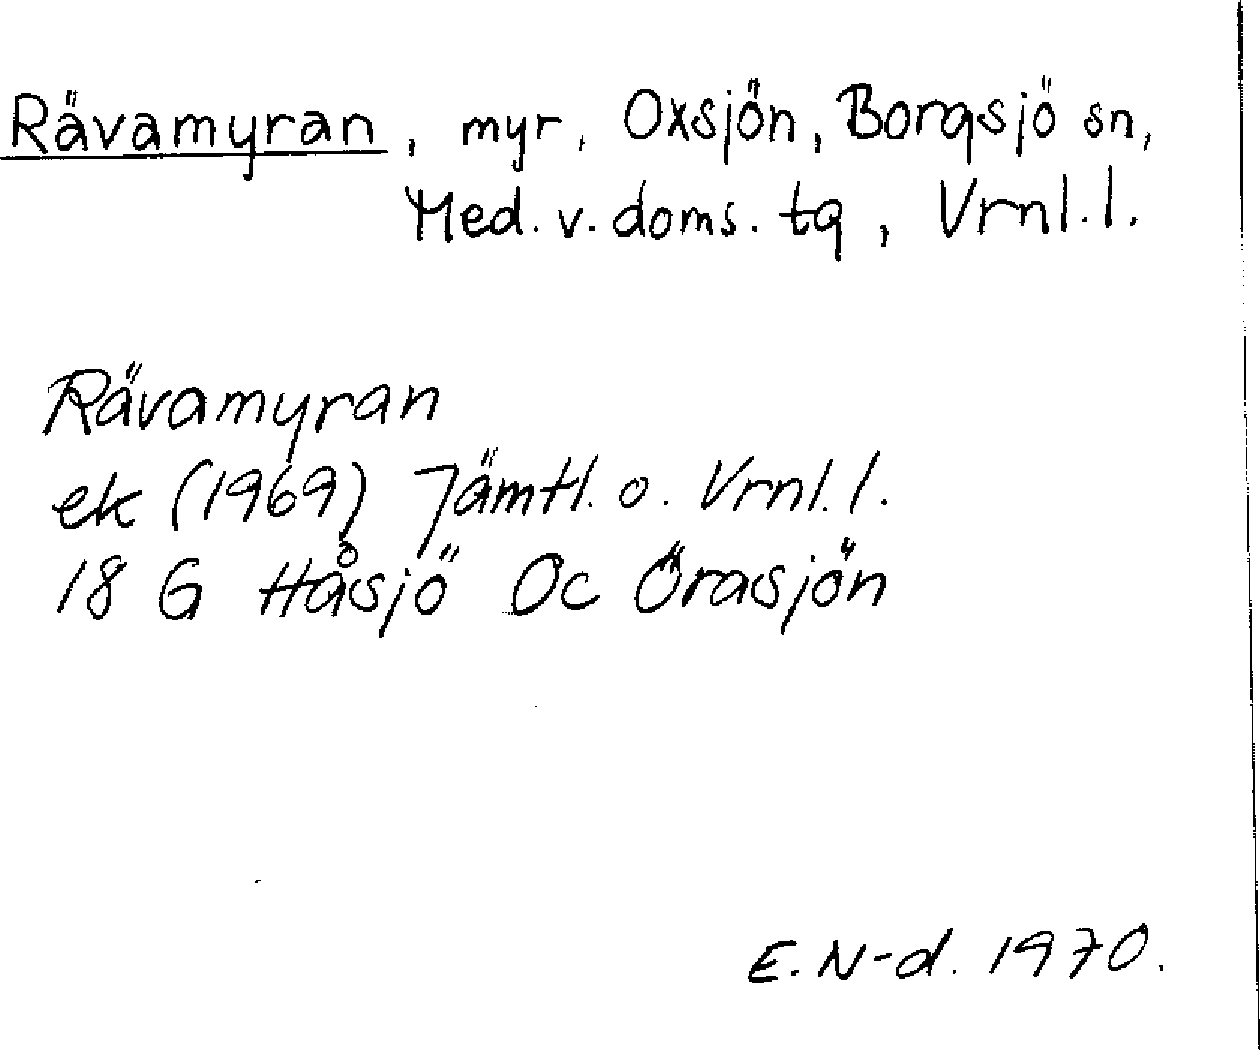 Rävamyran, myr, Oxsjön, Borgsjö sn,
Med. v. doms. tg, Vrnl. l.
Rävamyran
ek (1969) Jämtl. o. Vrnl. l.
18 G Håsjö Oc Örasjön
E. N-d. 1970.